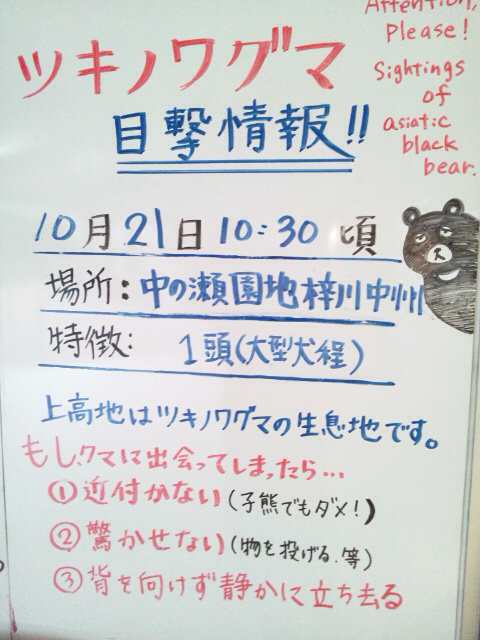 Attention,
Please!
Sightings
of
asiatic
black
bear.
ツキノワグマ
目撃情報!!
10月21日10:30頃
場所:中の瀬園地梓川中州
特徴: 1頭(大型犬程)
上高地はツキノワグマの生息地です。
もし、クマに出会ってしまったら…
①近付かない(子熊でもダメ!)
②驚かせない(物を投げる、等)
③背を向けず静かに立ち去る